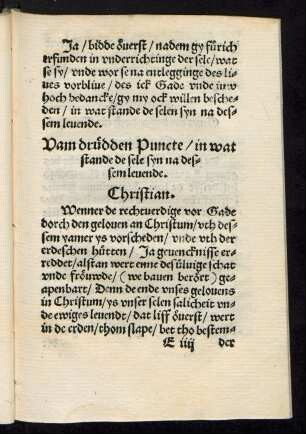 Ja / bidde öuerst / nadem gy fürich
erfunden in vnderrichtinge der sele / wat
se sy / vnde wor se na entlegginge des li-
ues vorbliue / des ick Gade vnde iuw
hoch bedancke / gy my ock willen besche-
den / in wat stande de selen syn na des-
sem leuende.
Vam drüdden Puncte / in wat
stande de sele syn na des-
sem leuende.
Christian.
Wenner de rechtuerdige vor Gade
dorch den gelouen an Christum / vth des-
sem yamer ys vorscheden / vnde vth der
erdeschen hütten / Ja geuencknisse er-
reddet / alsdan wert enne desüluige schat
vnde fröuwde / (we bauen berört) ge-
apenbart / Denn de ende vnses gelouens
in Christum / ys vnser selen salicheit vn-
de ewiges leuendt / dat liff öuerst / wert
in de erden / thom slape / bet tho bestem-
E iiij der